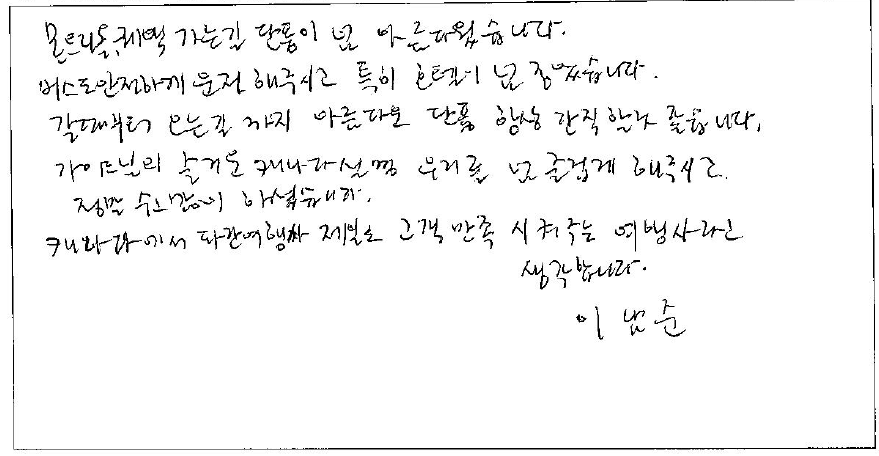 몬트리올,퀘벡 가는길 단풍이 넘 아름다웠습니다.
버스도안전하게 운전 해주시고 특히 호텔이 넘 좋았습니다.
갈때부터 오는길 까지 아름다운 단풍 항상 간직 할라 좋습니다,
가이드님의 즐거운 캐나다설명 우리를 넘 즐겁게 해주시고
정말 수고많이 하셨습니다.
캐나다에서 파란여행사 제일로 고객 만족 시켜주는 여행사라고
생각합니다.
이 남 준